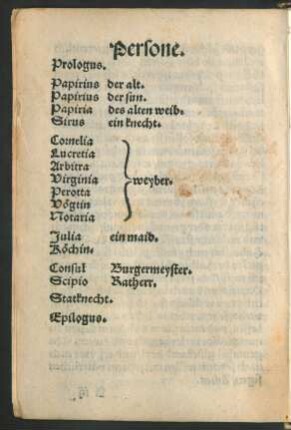 Persone.
Prologus.
Papirius der alt.
Papirius der sun.
Papiria des alten weib.
Sirus ein knecht.
Cornelia
Lucretia
Arbitra
Virginia weyber.
Perotta
Vögtin
Notaria
Julia ein maid.
Köchin.
Consul Burgermeyster.
Scipio Ratherr.
Statknecht.
Epilogus.